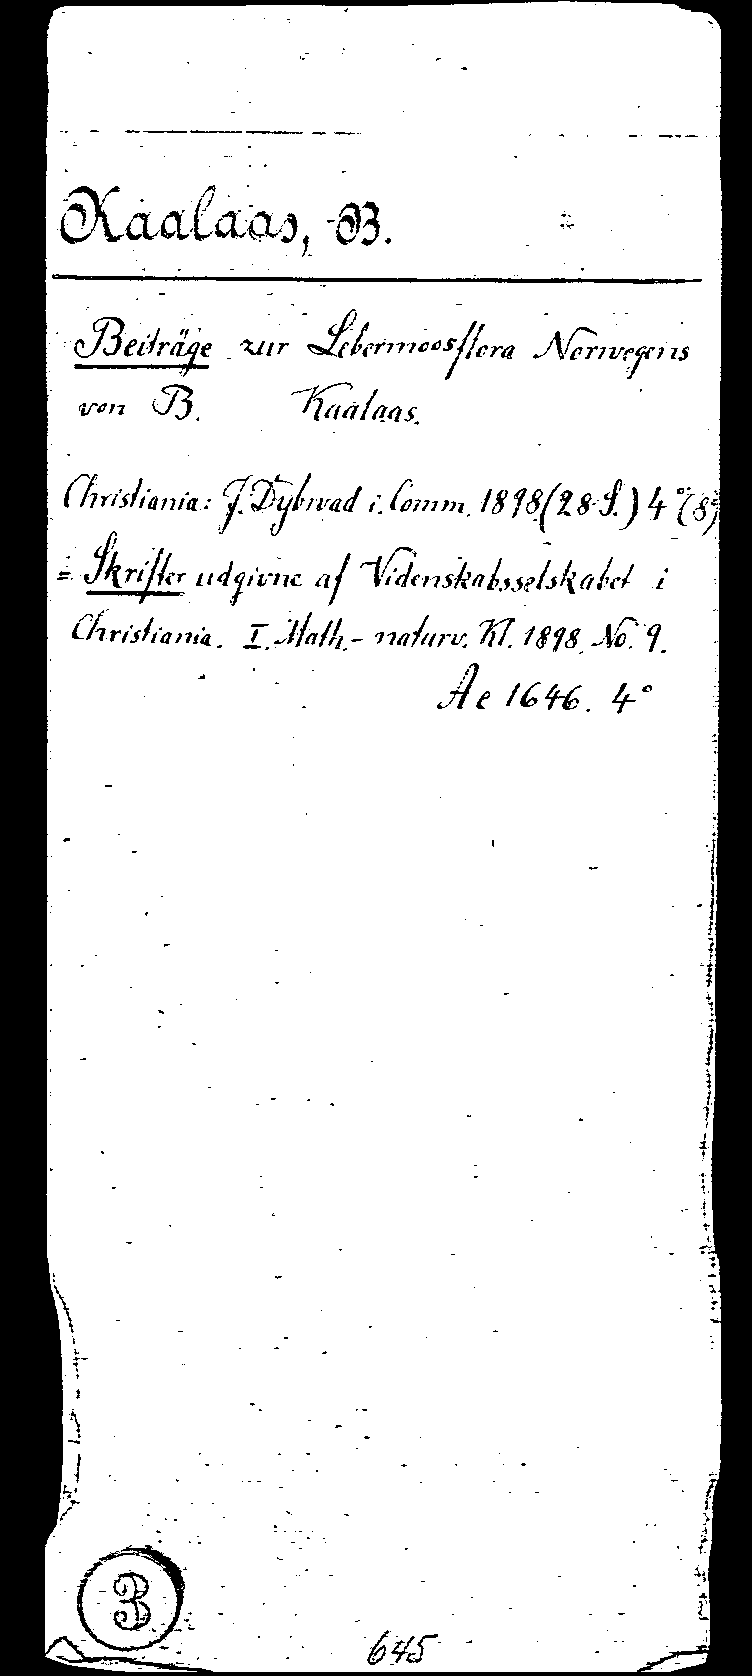 Kaalaas, B.
Beiträge zur Lebermoosflora Norwegens
von B. Kaalaas.
Christiania: J. Dybwad i. Comm. 1898 (28 S.) 4° (8°)
= Skrifter udgivne af Videnskabsselskabet i
Christiania. I. Math.- naturv. Kl. 1898. No. 9.
Ae 1646. 4°
3
645